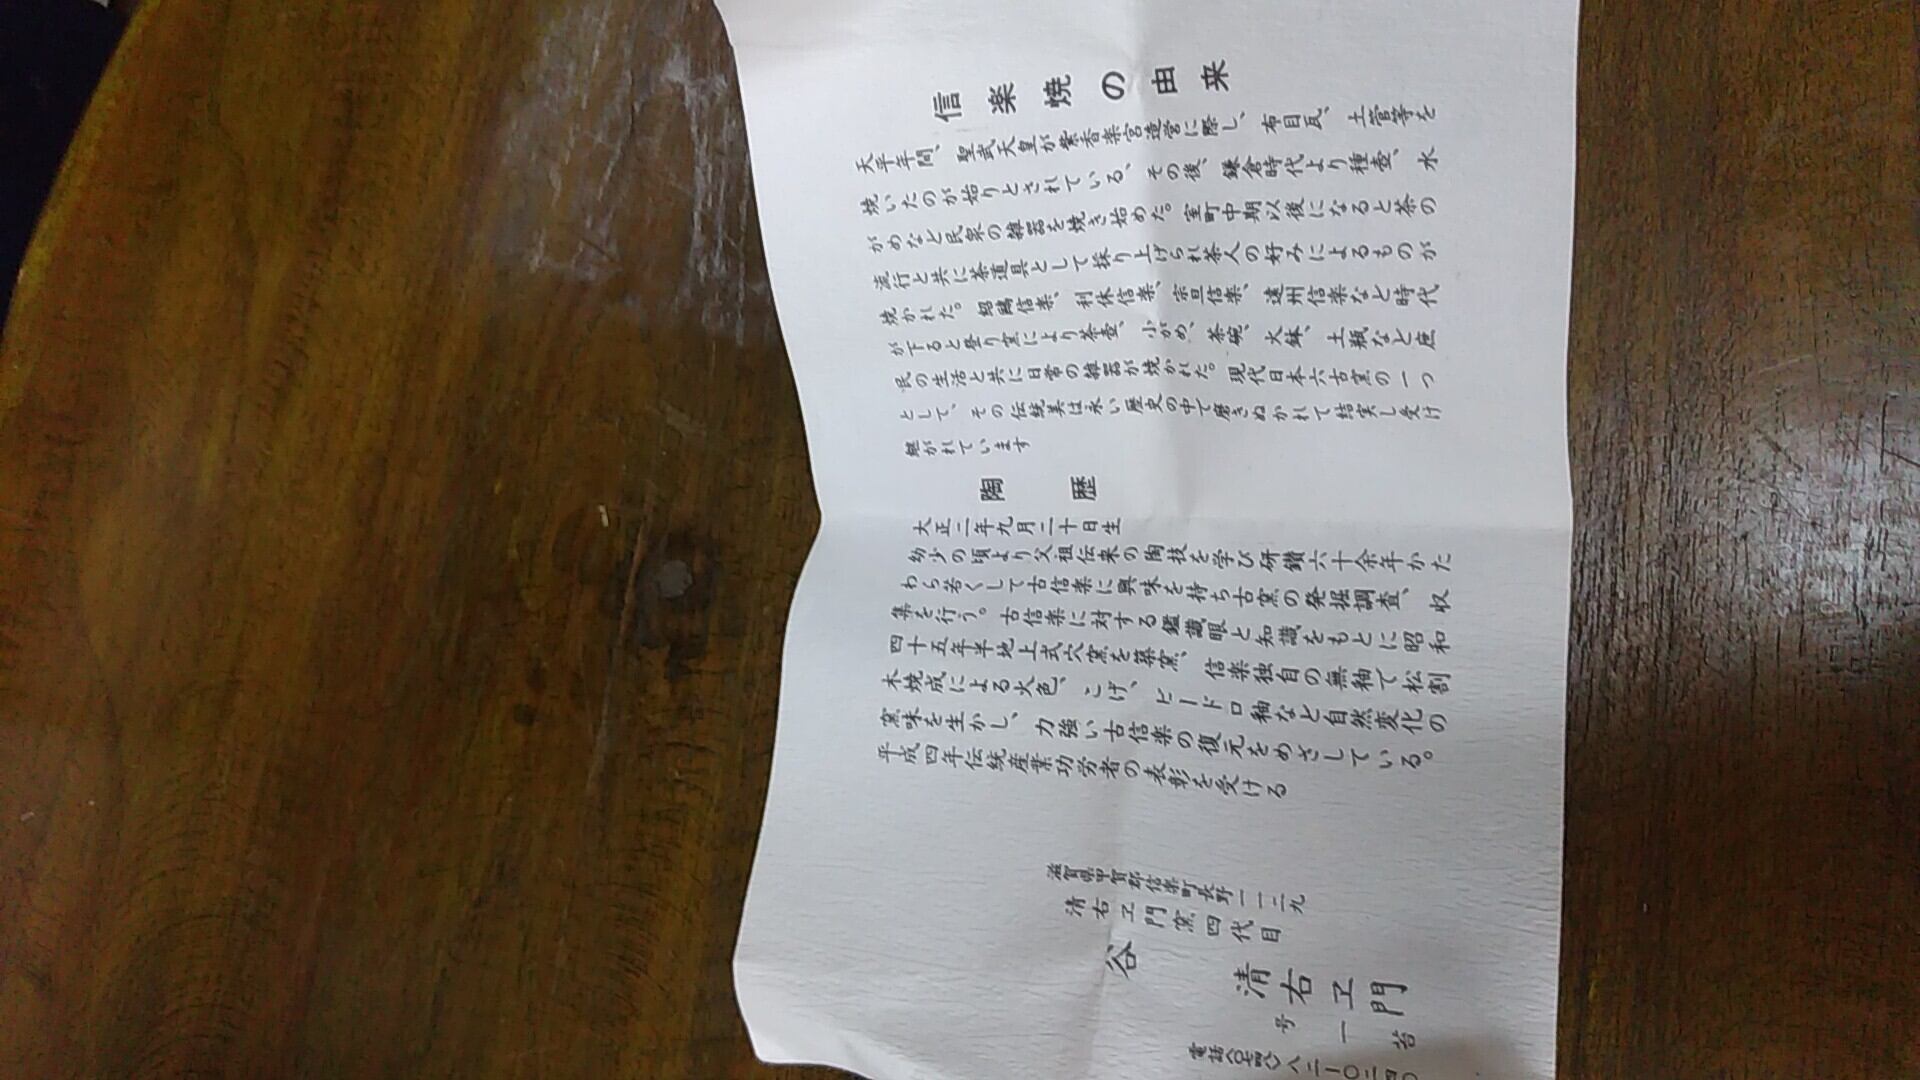 信楽焼の由来
天平年間、聖武天皇が紫香楽宮造営に際し、布目瓦、土管等を
焼いたのが始りとされている、その後、鎌倉時代より種壺、水
がめなど民衆の雑器を焼き始めた。室町中期以後になると茶の
流行と共に茶道具として採り上げられ茶人の好みによるものが
焼かれた。紹鷗信楽、利休信楽、宗旦信楽、遠州信楽など時代
が下ると登り窯により茶壺、小がめ、茶碗、火鉢、土瓶など庶
民の生活と共に日常の雑器が焼かれた。現代日本六古窯の一つ
として、その伝統美は永い歴史の中で磨きぬかれて結実し受け
継がれています
陶歴
大正二年九月二十日生
幼少の頃より父祖伝来の陶技を学び研鑽六十余年かた
わら若くして古信楽に興味を持ち古窯の発掘調査、収
集を行う。古信楽に対する鑑識眼と知識をもとに昭和
四十五年半地上式穴窯を築窯、信楽独自の無釉で松割
木焼成による火色、こげ、ビードロ釉など自然変化の
窯味を生かし、力強い古信楽の復元をめざしている。
平成四年伝統産業功労者の表彰を受ける
滋賀県甲賀郡信楽町長野一一二九
清右ヱ門窯四代目
谷清右ヱ門
号一苔
電話〈〇七四八〉八二ー〇二四〇